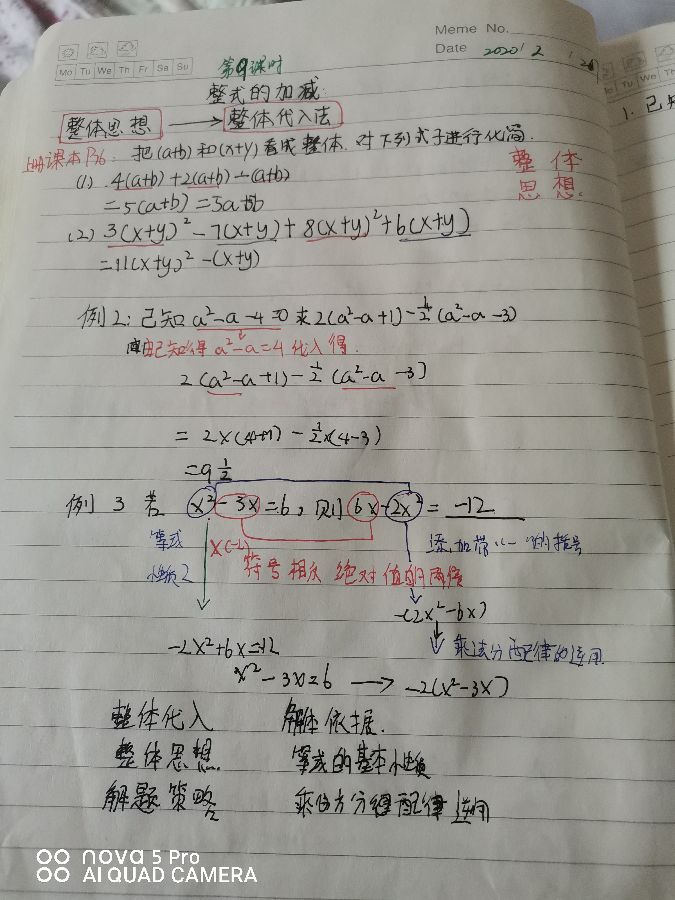 Meme No.
Date 2020/2/26
Mo Tu We Th Fr Sa Su
第9课时
整式的加减
整体思想 → 整体代入法
上册课本P36: 把(a+b)和(x+y)看成整体.对下列式子进行化简.
整体
思想.
(1) 4(a+b)+2(a+b)-(a+b)
=5(a+b)=5a+5b
(2) 3(x+y)²-7(x+y)+8(x+y)²+6(x+y)
=11(x+y)²-(x+y)
例2:已知a²-a-4=0求2(a²-a+1)-½(a²-a-3)
由已知得a²-a=4代入得.
2(a²-a+1)-½(a²-a-3)
=2×(4+1)-½×(4-3)
=9½
例3 若 x²-3x=6,则6x-2x²=-12
等式
性质2
×(-2)
符号相反 绝对值的两倍
添加带"-"的括号
-(2x²-6x)
-2x²+6x=12
乘法分配律的逆用
x²-3x=6 → -2(x²-3x)
整体代入 解体依据.
整体思想. 等式的基本性质
解题策略 分配律逆用
nova 5 Pro
AI QUAD CAMERA
1. 已知